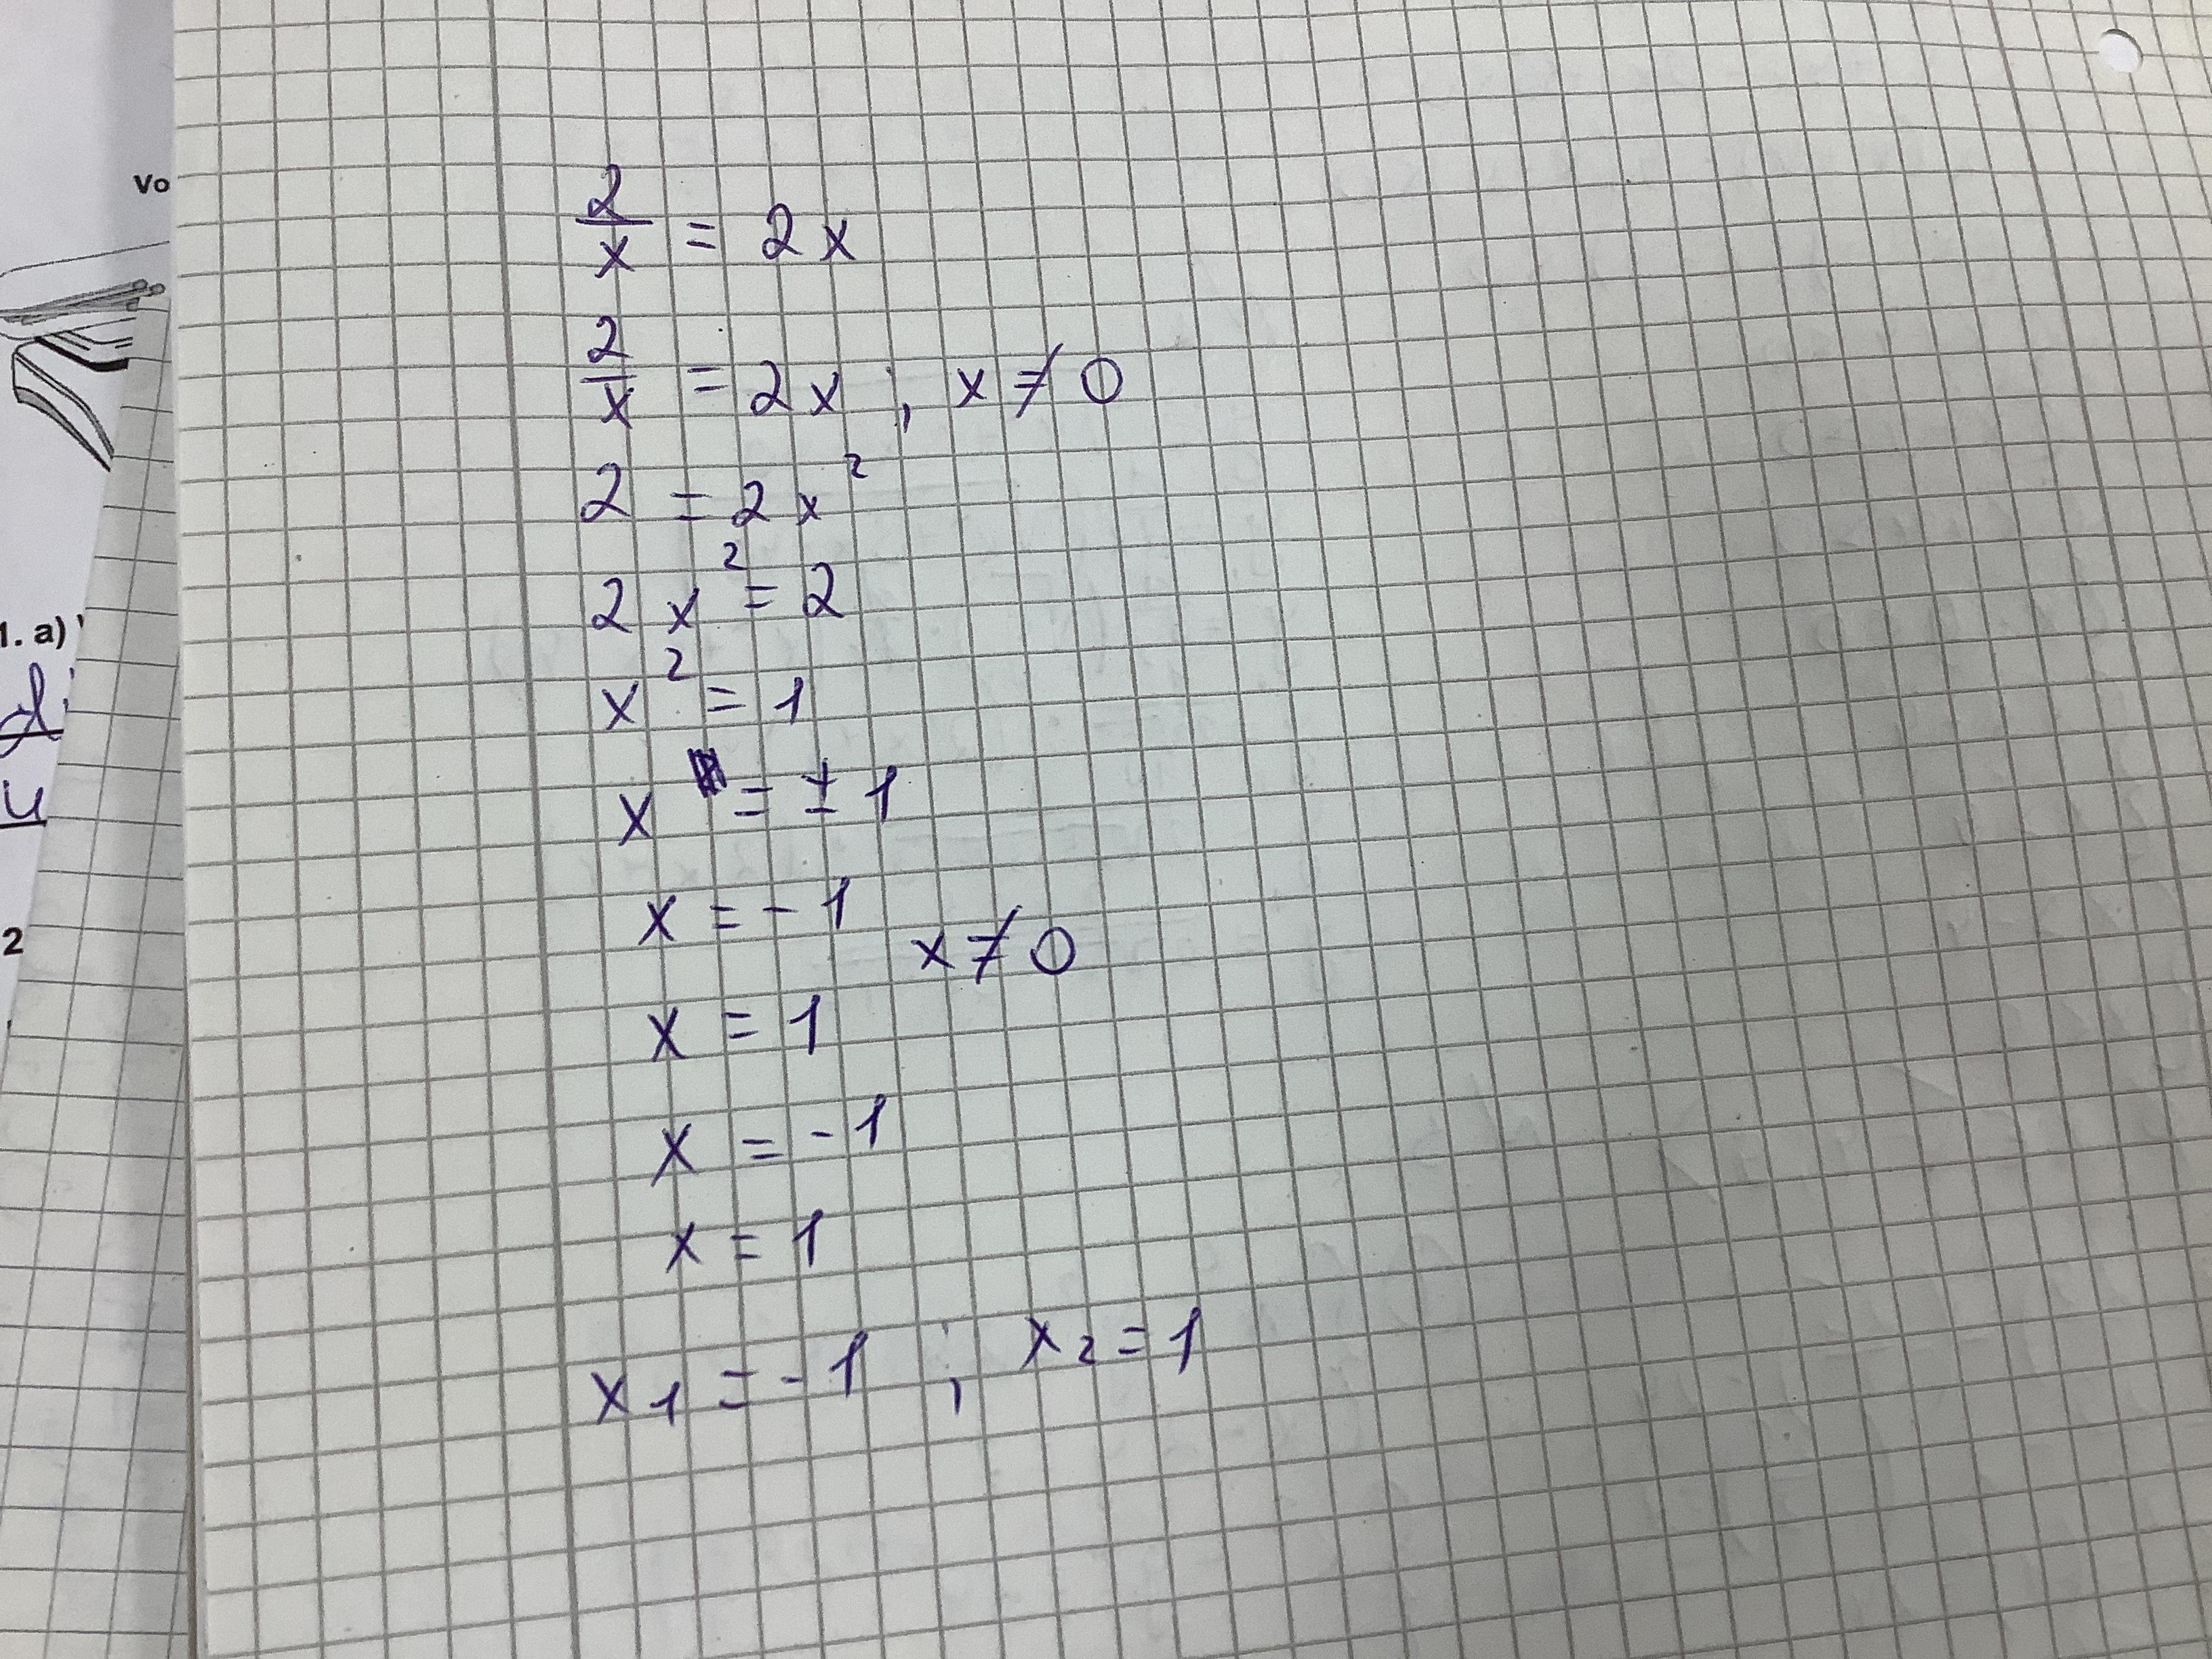 Vo
2/x = 2x
2/x = 2x ; x ≠ 0
2 = 2x²
2x² = 2
x² = 1
x = ± 1
x = -1
x ≠ 0
x = 1
x = -1
x = 1
x₁ = -1 ; x₂ = 1
1. a)
u
2